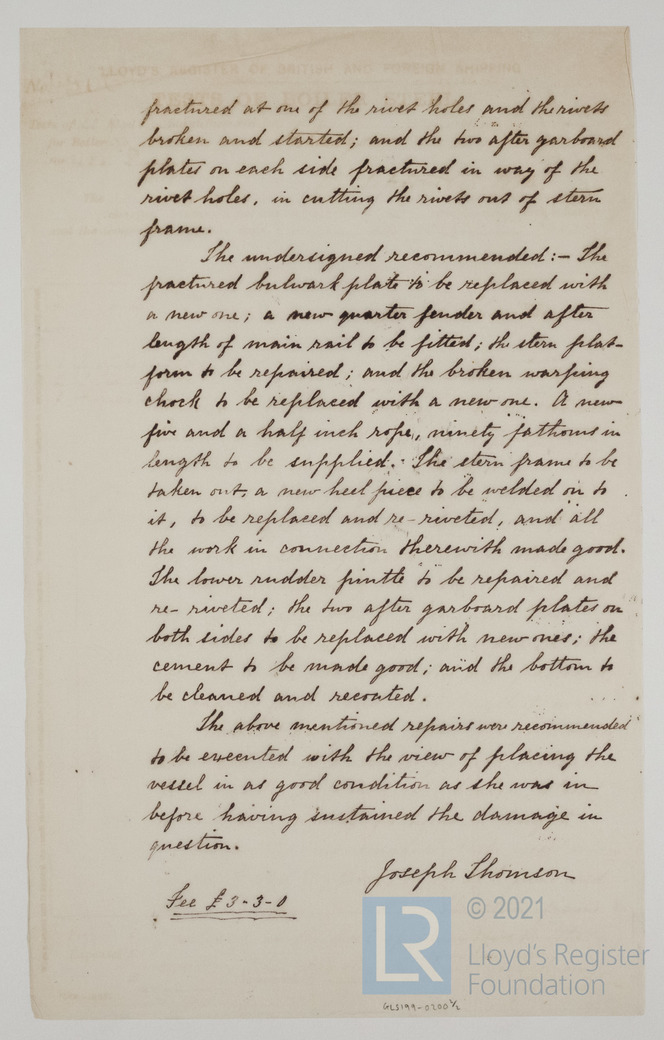 LLOYD'S REGISTER OF BRITISH AND FOREIGN SHIPPING
fractured at one of the rivet holes and the rivets
broken and started; and the two after garboard
plates on each side fractured in way of the
rivet holes, in cutting the rivets out of stern
frame.
The undersigned recommended:- The
fractured bulwark plate to be replaced with
a new one; a new quarter fender and after
length of main rail to be fitted; the stern plat-
form to be repaired; and the broken warping
chock to be replaced with a new one. A new
five and a half inch rope, ninety fathoms in
length to be supplied. The stern frame to be
taken out, a new heel piece to be welded on to
it, to be replaced and re-riveted, and all
the work in connection therewith made good.
The lower rudder pintle to be repaired and
re-riveted; the two after garboard plates on
both sides to be replaced with new ones; the
cement to be made good; and the bottom to
be cleaned and recoated.
The above mentioned repairs were recommended
to be executed with the view of placing the
vessel in as good condition as she was in
before having sustained the damage in
question.
Joseph Thomson
Fee £3-3-0
LR
© 2021
Lloyd's Register
Foundation
GLS199-0200 1/2